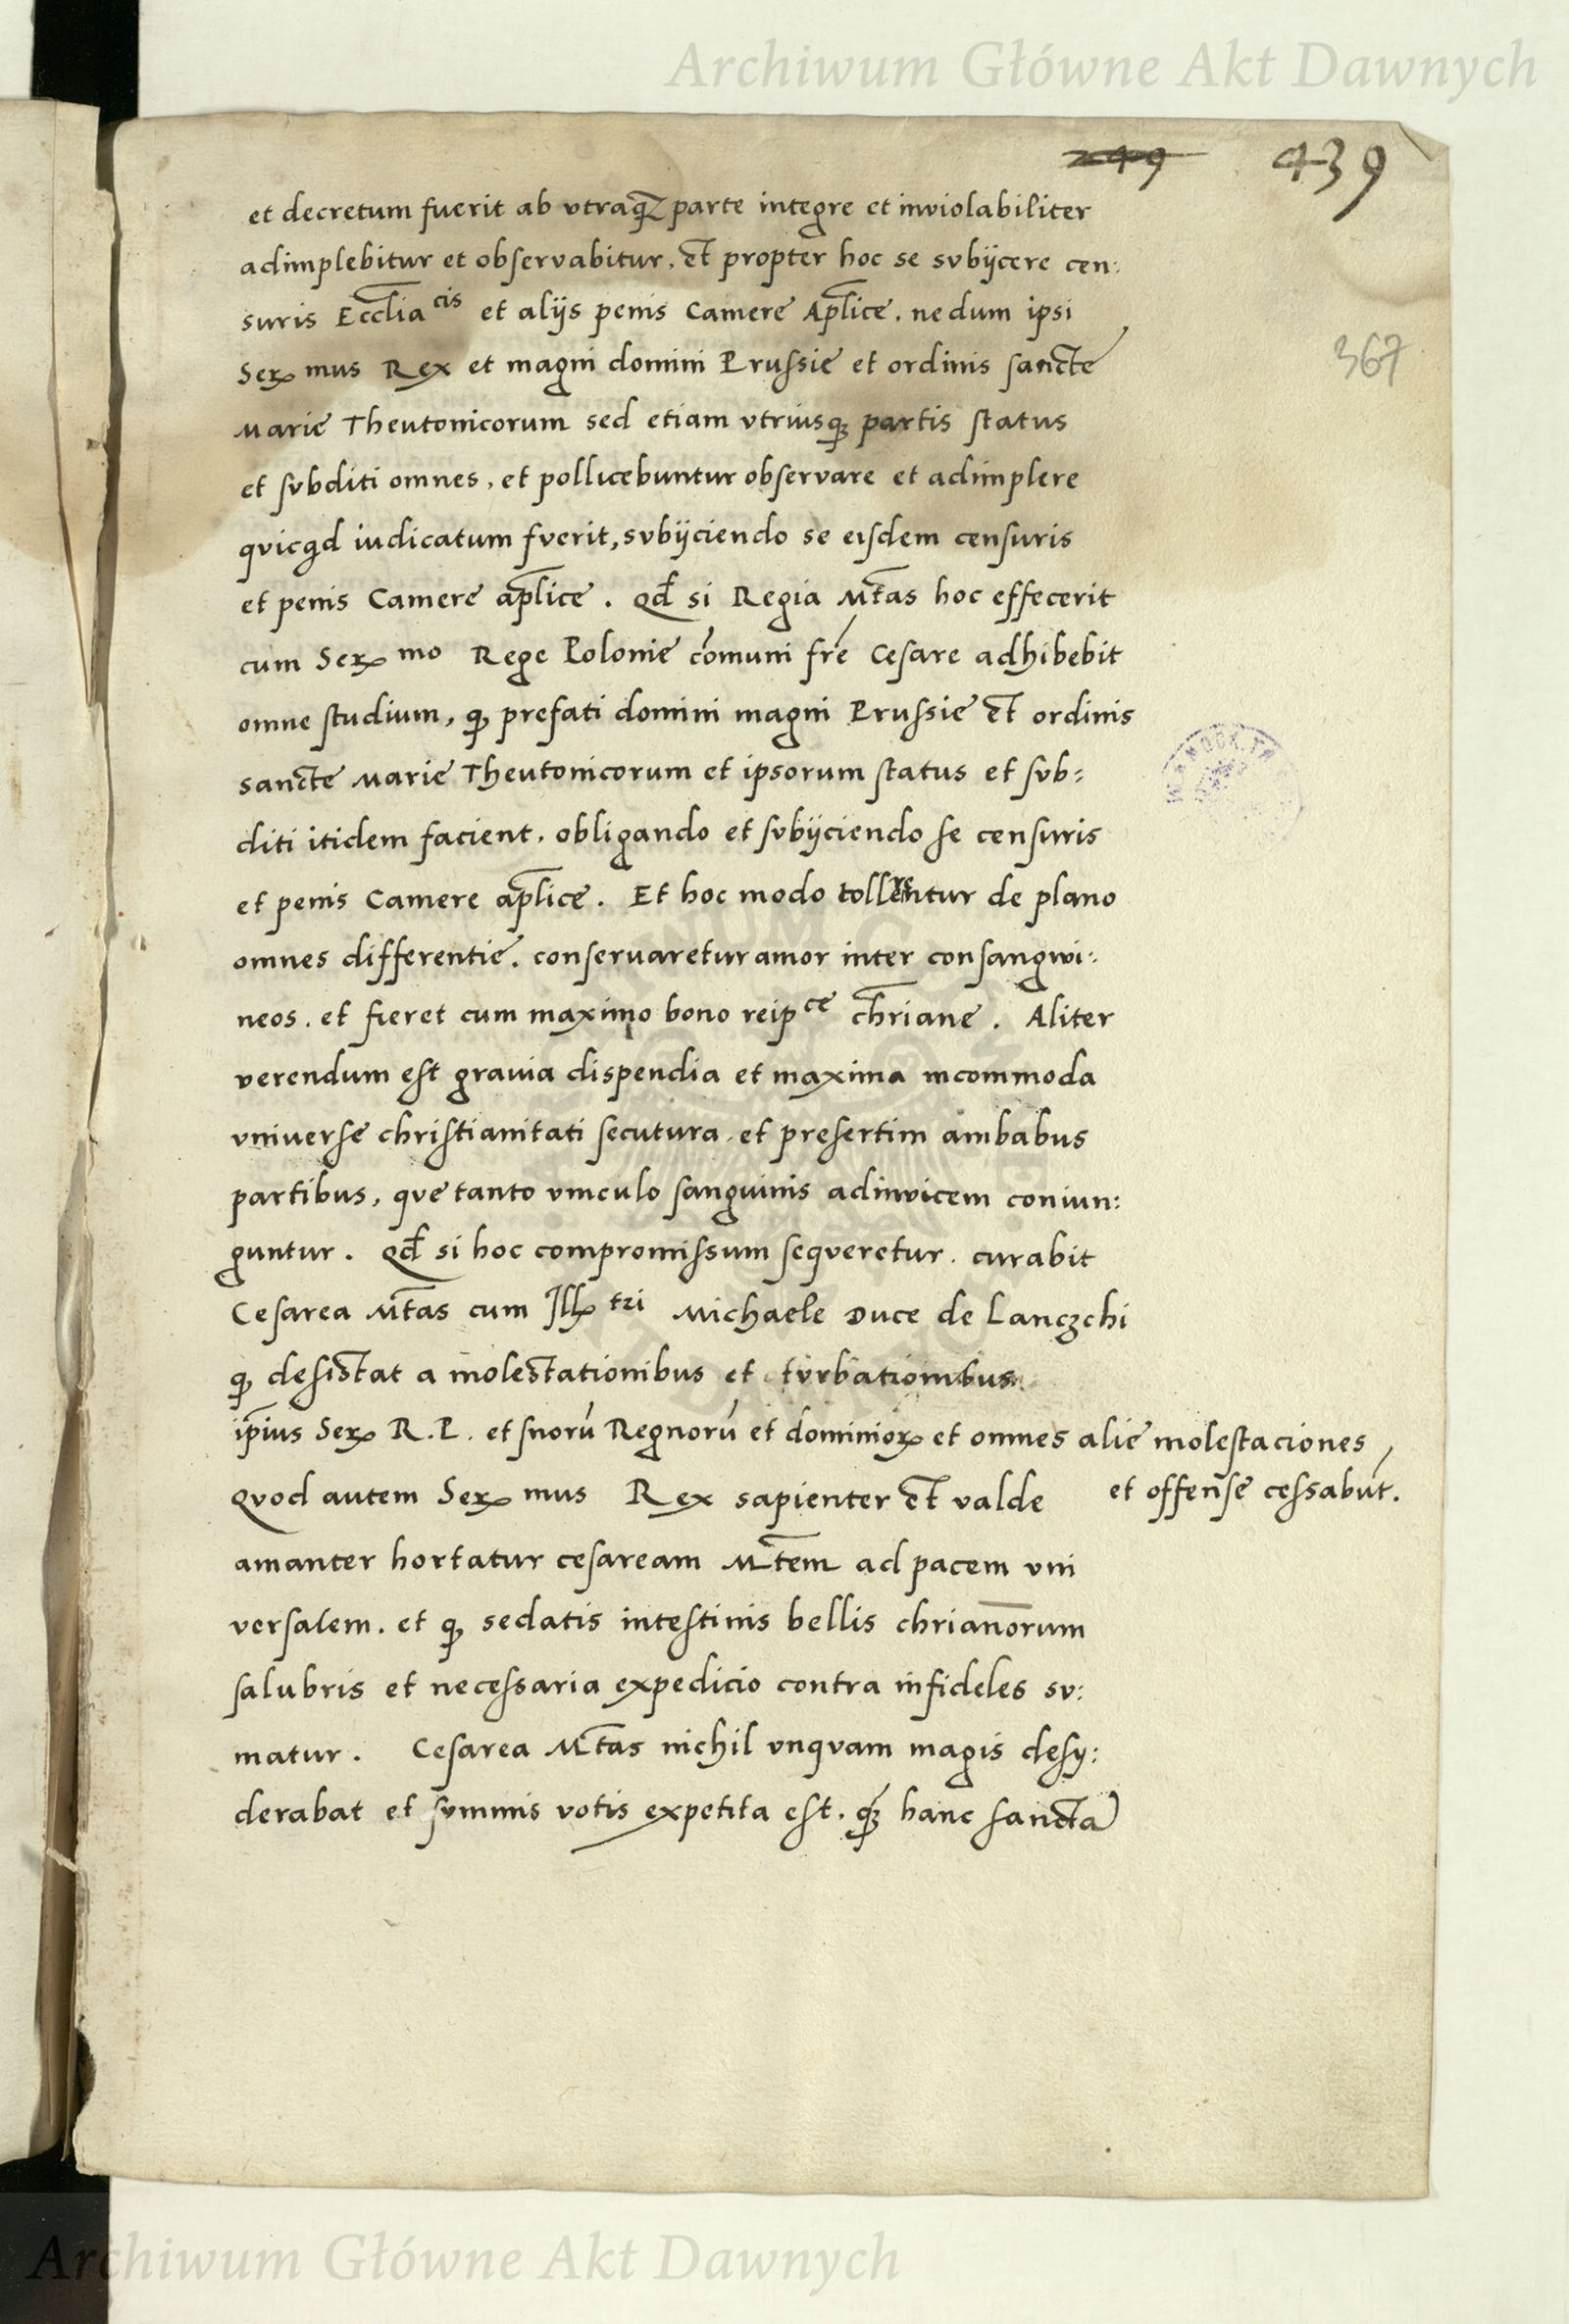 Archiwum Główne Akt Dawnych
249 439
et decretum fuerit ab vtraqꝫ parte integre et inviolabiliter
adimplebitur et obſervabitur. et propter hoc se svbijcere cen:
367
suris Eccl̅iacis et alijs penis Camere Apl̅ice. nedum ipsi
Serꝫmus Rex et magni domini Pruſsie et ordinis ſancte
Marie Theutonicorum sed etiam vtriusqꝫ partis ſtatus
et ſvbditi omnes, et pollicebuntur obſervare et adimplere
qvicqd iudicatum fverit, svbijciendo se eiſdem cenſuris
et penis Camere apl̅ice. Qd̅ si Regia Mt̅as hoc effecerit
cum Serꝫmo Rege Polonie co̅muni fr̅e Ceſare adhibebit
omne ſtudium, qꝫ prefati domini magni Pruſsie et ordinis
sancte Marie Theutonicorum et ipsorum ſtatus et ſvb:
diti itidem facient. obligando et ſvbijciendo ſe cenſuris
et penis Camere apl̅ice. Et hoc modo tollerentur de plano
omnes differentie. conſervaretur amor inter conſangwi:
neos. et fieret cum maximo bono reipce chr̅iane. Aliter
verendum eſt gravia dispendia et maxima incommoda
vniverſe chriſtianitati ſecutura et preſertim ambabus
partibus, qve tanto vinculo ſanguinis adinvicem coniun:
guntur. Qd̅ si hoc compromiſsum ſeqveretur. curabit
Ceſarea Mt̅as cum Illꝫtri Michaele Duce de Lanczchi
qꝫ deſiſtat a moleſtationibus et tvrbationibus
ip̅ius Serꝫ R. P. et ſuoru̅ Regnoru̅ et dominioꝝ et omnes alie moleſtaciones
et offenſe ceſsabu̅t.
Qvod autem Serꝫmus Rex sapienter et valde
amanter hortatur ceſaream Mt̅em ad pacem vni
verſalem. et qꝫ sedatis inteſtinis bellis chriano̅rum
ſalubris et neceſsaria expedicio contra infideles sv:
matur. Ceſarea Mt̅as nichil vnqvam magis deſy:
derabat et ſvmmis votis expetita eſt. qꝫ hanc ſancta̅
Archiwum Główne Akt Dawnych